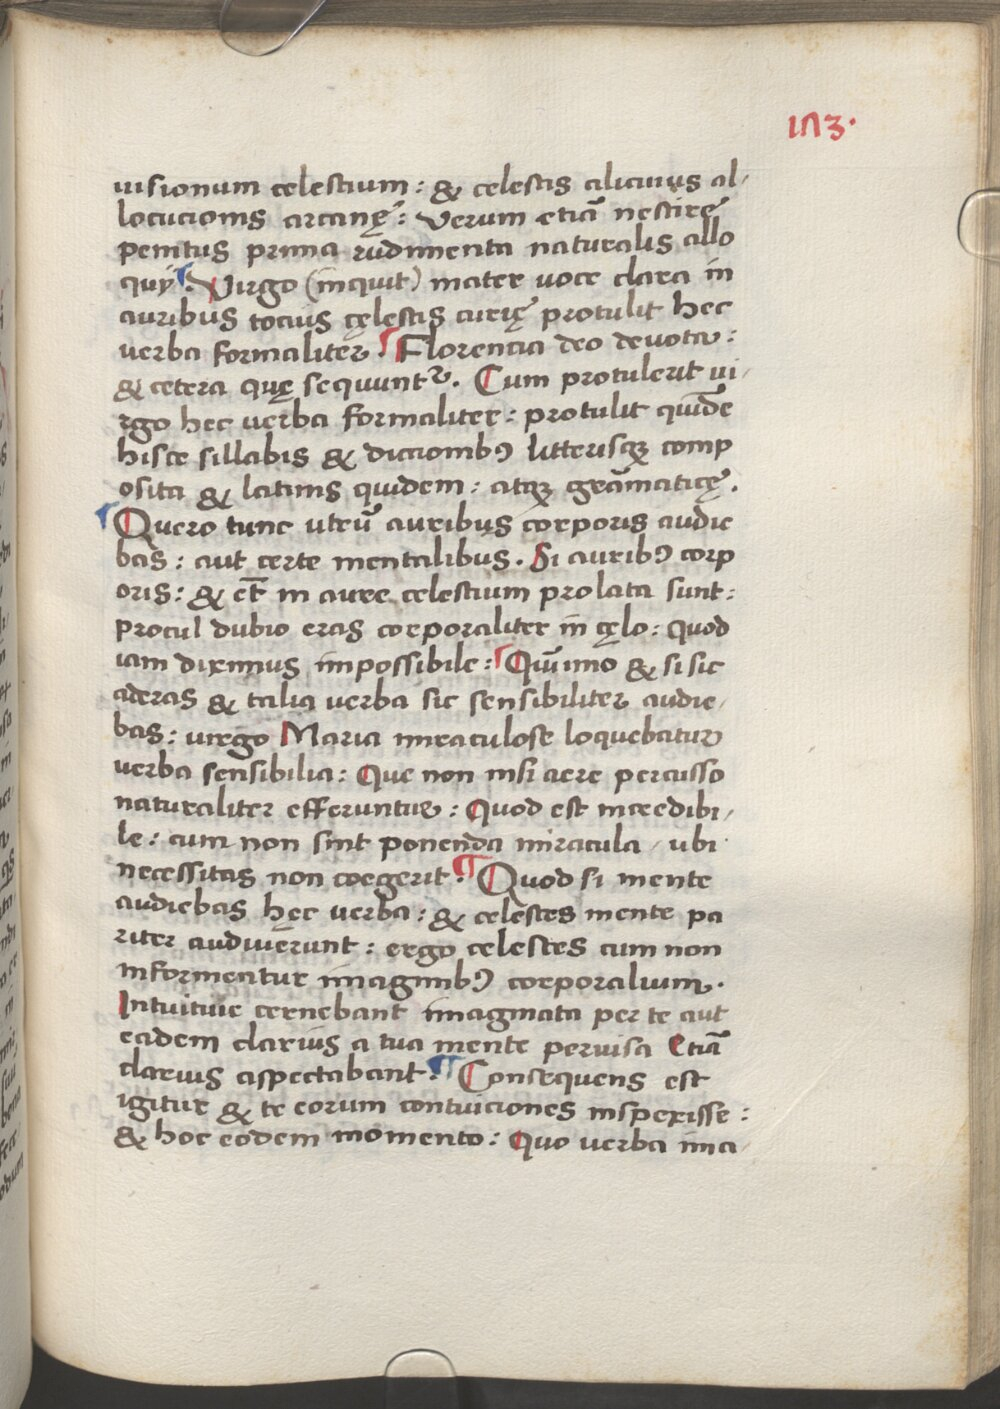 113.
uisionum celestium: & celestis alicuius al-
locucionis arcanę: Verum etiā nescirę
penitus prima rudimenta naturalis allo
quij. Virgo (inquit) mater voce clara in
auribus tocius cęlestis curię protulit hec
verba formaliter. Florencia deo deuota:
& cetera quę sequuntr. Cum protulerit ui-
rgo hec uerba formaliter: protulit quidē
hisce sillabis & diccionibꝰ litterisqꝫ comp
osita & latinis quidem: atqꝫ grāmaticę.
Quero tunc utrū auribus corporis audie
bas: aut certe mentalibus. Si auribꝰ corp
oris: & et̄ in aure celestium prolata sunt:
procul dubio eras corporaliter in cęlo: quod
iam diximus impossibile: Quīimo & si sic
aderas & talia uerba sic sensibiliter audie-
bas: uirgo Maria miraculose loquebatur
uerba sensibilia: Que non nisi aere percusso
naturaliter efferuntur: Quod est incredibi-
le: cum non sint ponenda miracula / ubi
necessitas non coegerit. Quod si mente
audiebas hęc uerba: & celestes mente pa
riter audiuerunt: ergo celestes cum non
informentur imaginibꝰ corporalium.
Intuitiue cernebant imaginata per te aut
eadem clarius a tua mente peruisa Etiā
clarius aspectabant. Consequens est
igitur & te eorum contuiciones inspexisse:
& hoc eodem momento: Quo uerba ima-